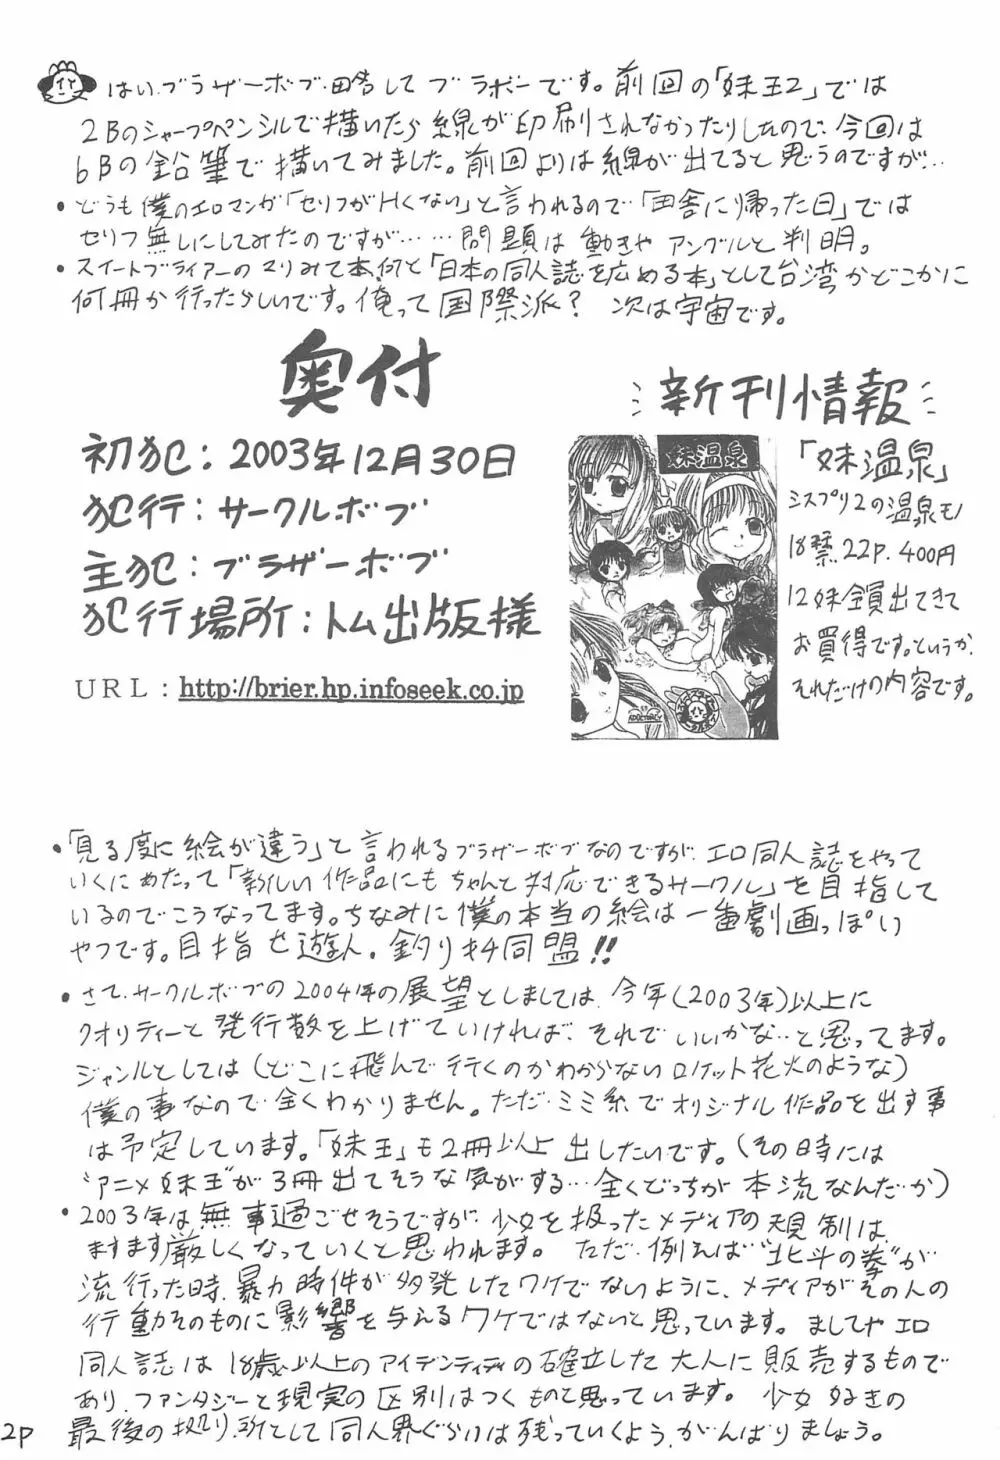 はい、ブラザーボブ、略してブラボーです。前回の「妹王2」では
2Bのシャープペンシルで描いたら線が印刷されなかったりしたので、今回は
6Bの鉛筆で描いてみました。前回よりは線が出てると思うのですが…
・どうも僕のエロマンガ「セリフがHくない」と言われるので「田舎に帰った日」では
セリフ無しにしてみたのですが……問題は動きやアングルと判明。
・スイートブライアーのマリみて本、何と「日本の同人誌を広める本」として台湾かどこかに
何冊か行ったらしいです。俺って国際派? 次は宇宙です。
奥付
初犯:2003年12月30日
犯行:サークルボブ
主犯:ブラザーボブ
犯行場所:トム出版様
URL:http://brier.hp.infoseek.co.jp
新刊情報
妹温泉
「妹温泉」
シスプリ2の温泉モノ
18禁.22P.400円
12妹全員出てきて
お買得です。というか、
それだけの内容です。
・「見る度に絵が違う」と言われるブラザーボブなのですが、エロ同人誌をやって
いくにあたって「新しい作品にもちゃんと対応できるサークル」を目指して
いるのでこうなってます。ちなみに僕の本当の絵は一番劇画っぽい
やつです。目指せ遊人.釣りキチ同盟!!
・さて、サークルボブの2004年の展望としましては、今年(2003年)以上に
クオリティーと発行数を上げていければ、それでいいかな…と思ってます。
ジャンルとしては(どこに飛んで行くのかわからないロケット花火のような)
僕の事なので全くわかりません。ただ、ミミ系でオリジナル作品を出す事
は予定しています。「妹王」も2冊以上出したいです。(その時には
"アニメ妹王"が3冊出てそうな気がする…全くどっちが本流なんだか)
・2003年は無事過ごせそうですが、少女を扱ったメディアの規制は、
ますます厳しくなっていくと思われます。 ただ、例えば"北斗の拳"が
流行った時、暴力事件が多発したワケでないように、メディアがその人の
行動そのものに影響を与えるワケではないと思っています。ましてやエロ
同人誌は18歳以上のアイデンティティの確立した大人に販売するもので
あり、ファンタジーと現実の区別はつくものと思っています。 少女好きの
最後の拠り所として同人界ぐらいは残っていくよう、がんばりましょう。
2P